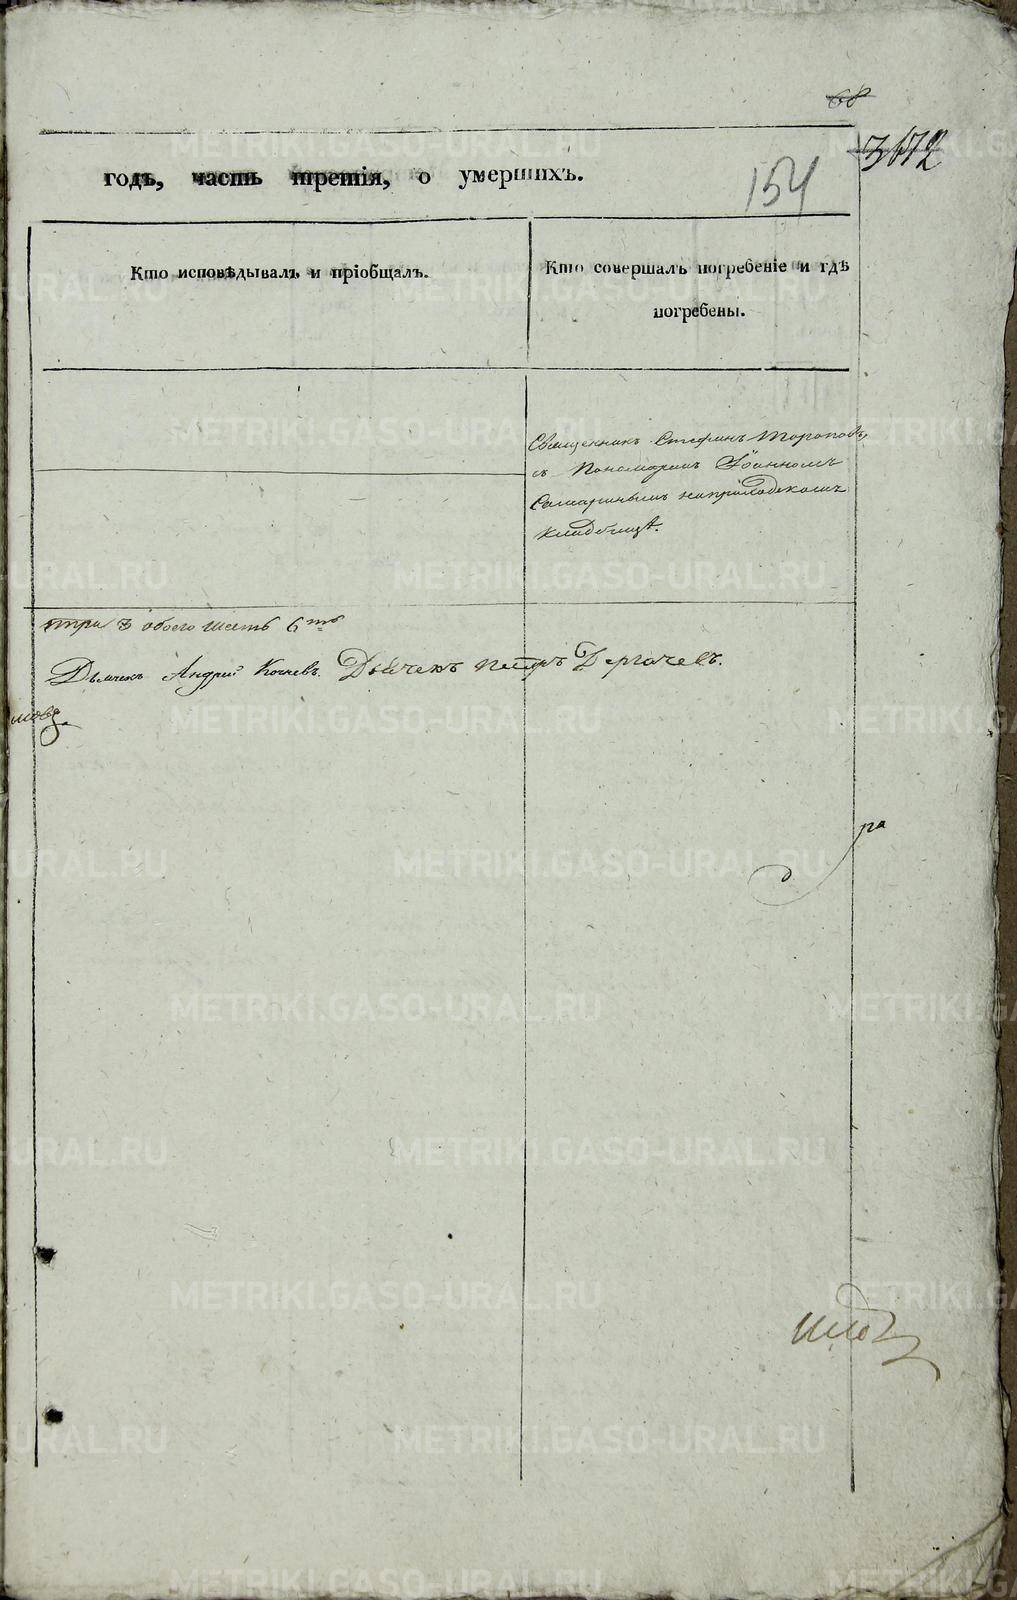 68
3672
154
годъ, часть третія, о умершихъ.
Кто исповѣдывалъ и пріобщалъ.
Кто совершалъ погребеніе и гдѣ
погребены.
Священникъ Стефанъ Тороповъ,
съ Пономаремъ Іоанномъ
Самаринымъ наприходскомъ
кладбищѣ.
три 3 обоего шесть 6ть
Дьячекъ Андрей Дьячекъ петръ Дергачевъ.
мовъ
ра
METRIKI.GASO-URAL.RU